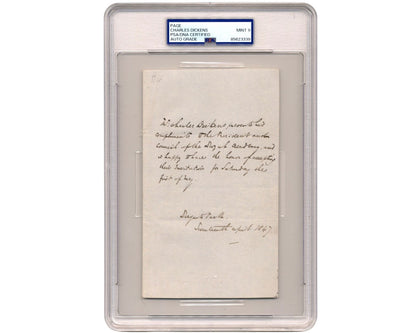 PAGE
CHARLES DICKENS
PSA/DNA CERTIFIED
AUTO GRADE
MINT 9
Mr Charles Dickens presents his
compliments to the President and
Council of the Royal Academy, and
is happy to have the honor of accepting
their Invitation for Saturday the
first of May.
April 1847